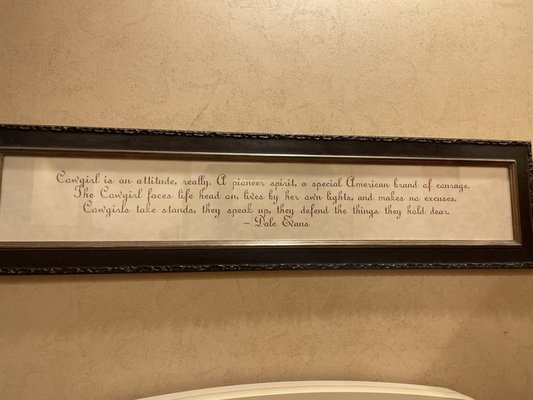 Cowgirl is an attitude, really. A pioneer spirit, a special American brand of courage.
The Cowgirl faces life head on, lives by her own lights, and makes no excuses.
Cowgirls take stands, they speak up, they defend the things they hold dear.
– Dale Evans